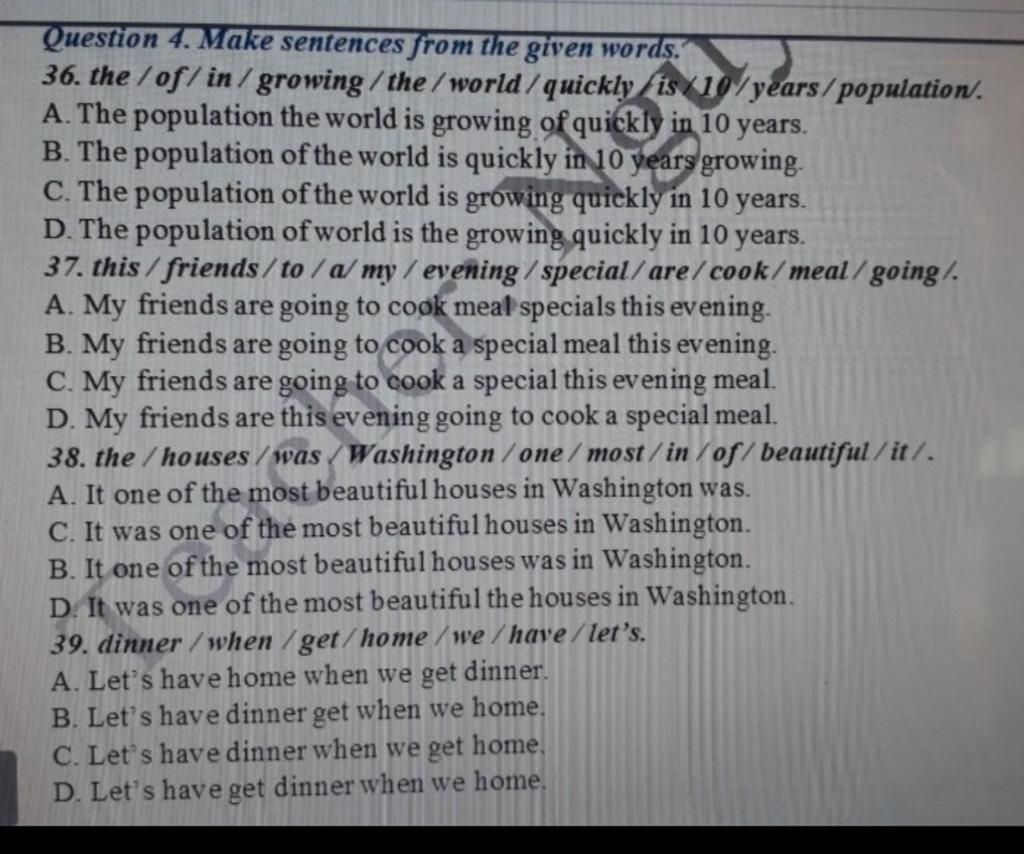 Question 4. Make sentences from the given words.
36. the / of / in / growing / the / world / quickly / is / 10 / years / population/.
A. The population the world is growing of quickly in 10 years.
B. The population of the world is quickly in 10 years growing.
C. The population of the world is growing quickly in 10 years.
D. The population of world is the growing quickly in 10 years.
37. this / friends / to / a / my / evening / special / are / cook / meal / going /.
A. My friends are going to cook meal specials this evening.
B. My friends are going to cook a special meal this evening.
C. My friends are going to cook a special this evening meal.
D. My friends are this evening going to cook a special meal.
38. the / houses / was / Washington / one / most / in / of / beautiful / it /.
A. It one of the most beautiful houses in Washington was.
C. It was one of the most beautiful houses in Washington.
B. It one of the most beautiful houses was in Washington.
D. It was one of the most beautiful the houses in Washington.
39. dinner / when / get / home / we / have / let's.
A. Let's have home when we get dinner.
B. Let's have dinner get when we home.
C. Let's have dinner when we get home.
D. Let's have get dinner when we home.
Teacher